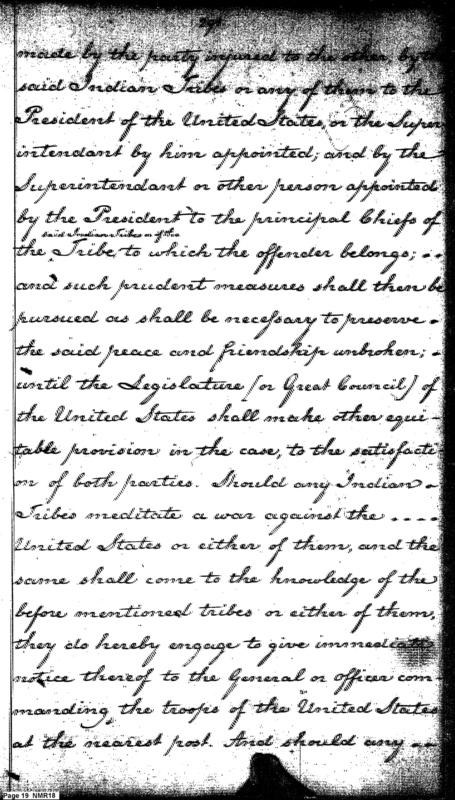 made by the party injured to the other, by the
said Indian Tribes or any of them to the
President of the United States, or the Super
intendant by him appointed; and by the
Superintendant or other person appointed
by the President to the principal Chiefs of
said Indian Tribes or of the
the Tribe, to which the offender belongs; --
and such prudent measures shall then be
pursued as shall be necessary to preserve -
the said peace and friendship unbroken; -
until the Legislature [or Great Council] of
the United States shall make other equi-
table provision in the case, to the satisfacti-
on of both parties. Should any Indian -
Tribes meditate a war against the ....
United States or either of them, and the
same shall come to the knowledge of the
before mentioned tribes or either of them,
they do hereby engage to give immediate
notice thereof to the General or officer com-
manding the troops of the United States
at the nearest post. And should any --
Page 19 NMR18